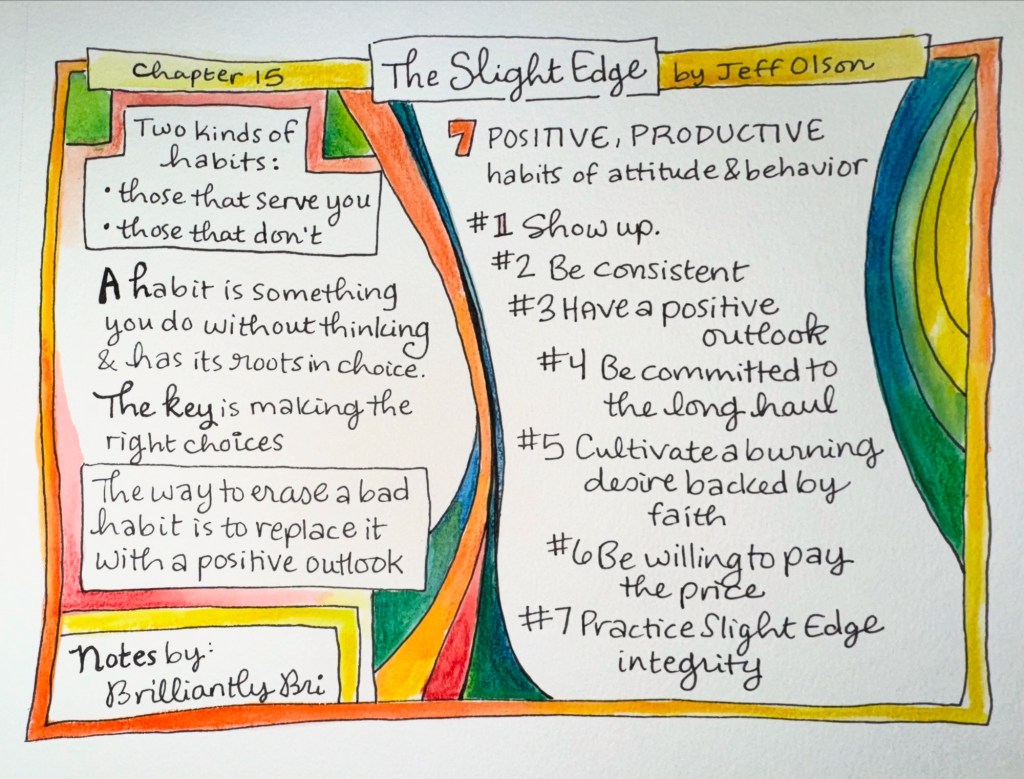 Chapter 15
The Slight Edge
by Jeff Olson
Two kinds of
habits:
• those that serve you
• those that don't
A habit is something
you do without thinking
& has its roots in choice.
The key is making the
right choices
The way to erase a bad
habit is to replace it
with a positive outlook
Notes by:
Brilliantly Bri
7 POSITIVE, PRODUCTIVE
habits of attitude & behavior
#1 Show up.
#2 Be consistent
#3 Have a positive
outlook
#4 Be committed to
the long haul
#5 Cultivate a burning
desire backed by
faith
#6 Be willing to pay
the price
#7 Practice Slight Edge
integrity